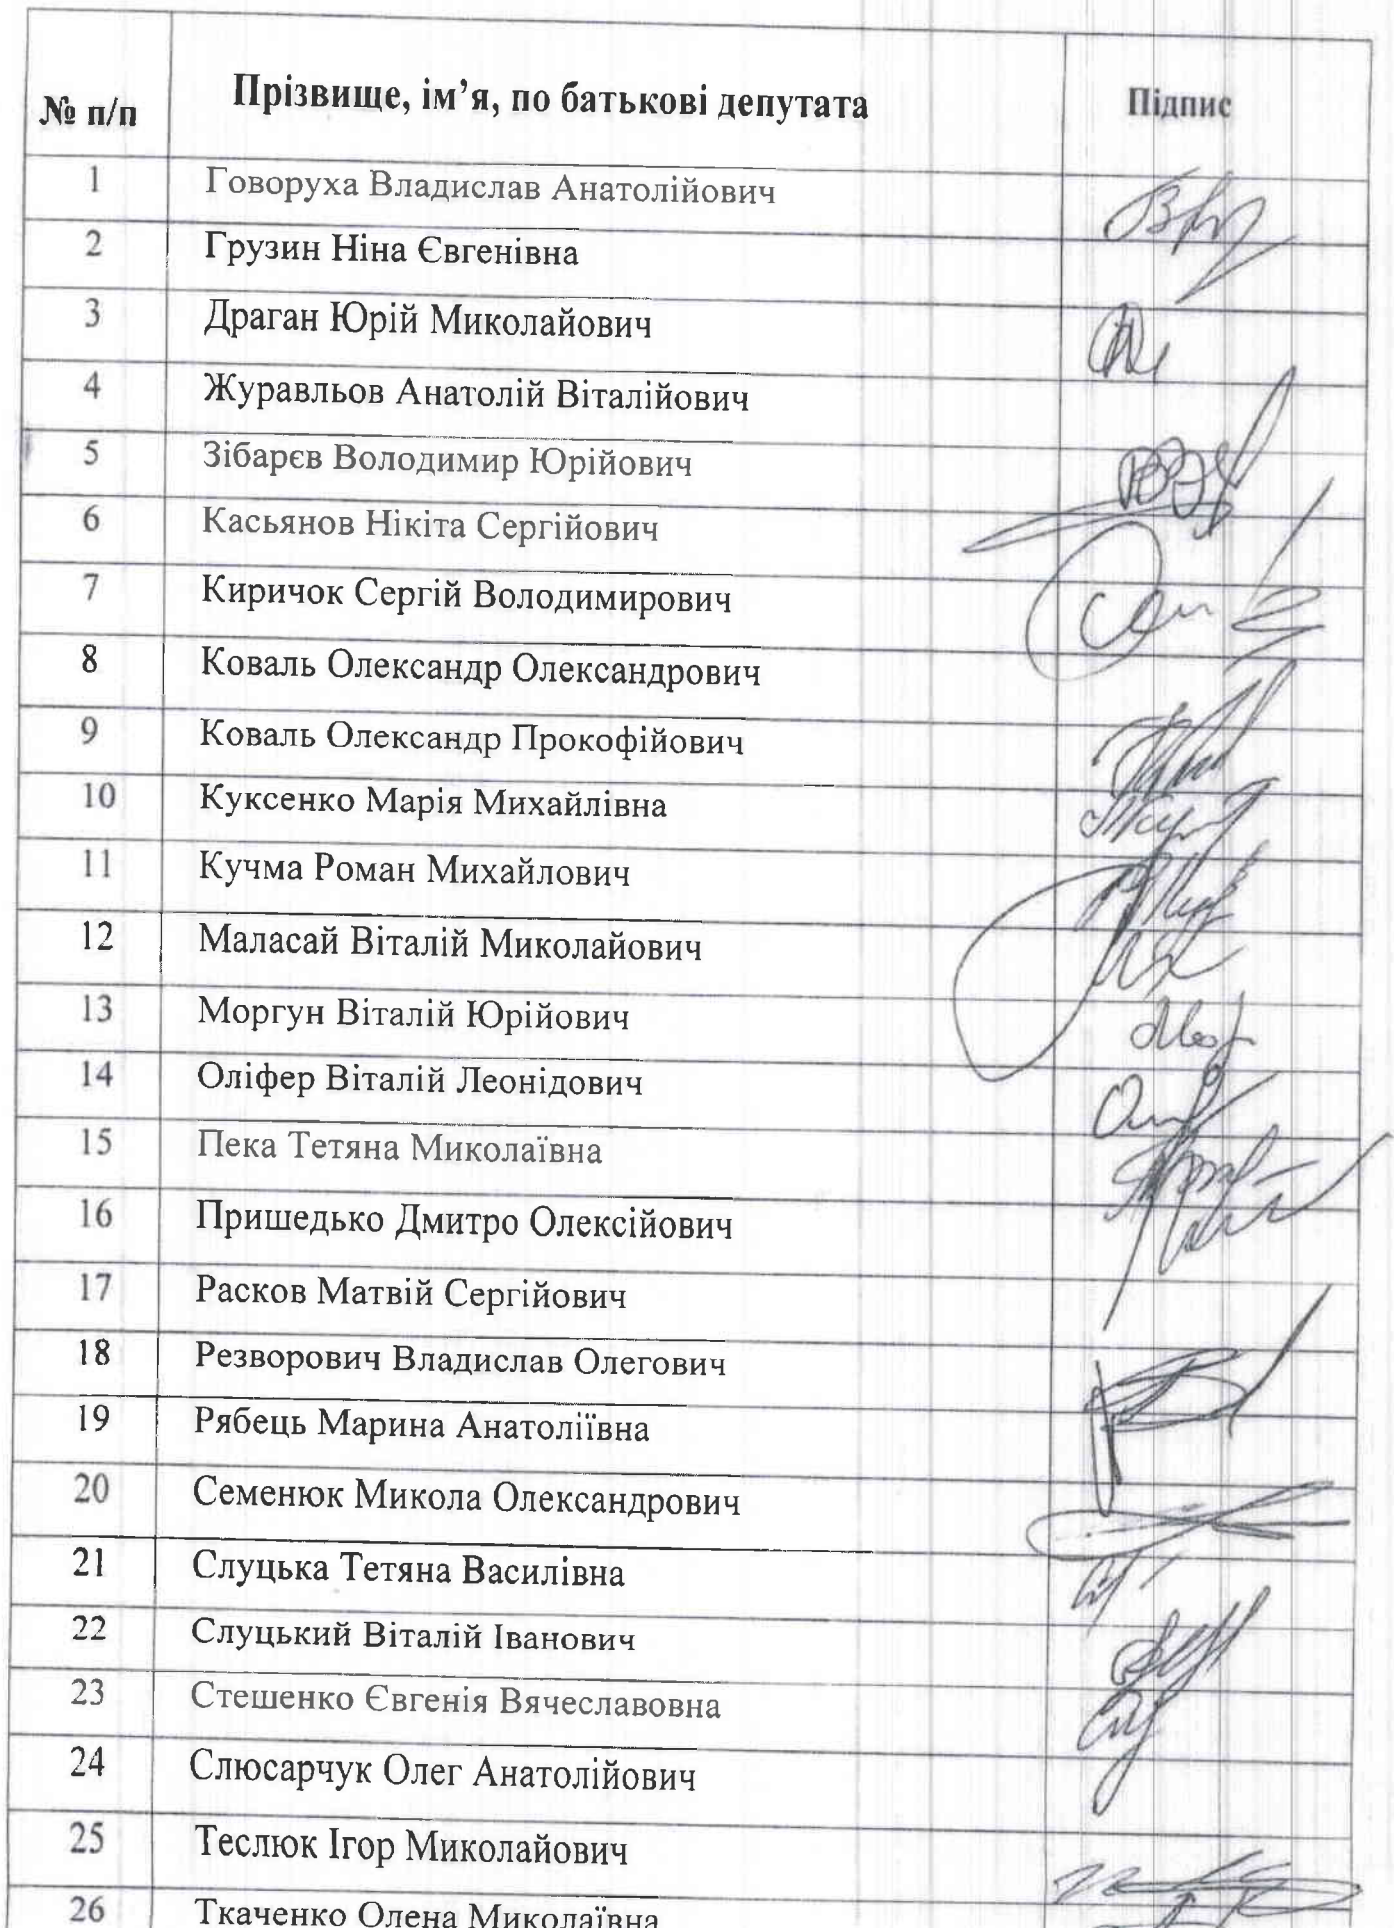 № п/п Прізвище, ім’я, по батькові депутата Підпис
1 Говоруха Владислав Анатолійович
2 Грузин Ніна Євгенівна
3 Драган Юрій Миколайович
4 Журавльов Анатолій Віталійович
5 Зібарєв Володимир Юрійович
6 Касьянов Нікіта Сергійович
7 Киричок Сергій Володимирович
8 Коваль Олександр Олександрович
9 Коваль Олександр Прокофійович
10 Куксенко Марія Михайлівна
11 Кучма Роман Михайлович
12 Маласай Віталій Миколайович
13 Моргун Віталій Юрійович
14 Оліфер Віталій Леонідович
15 Пека Тетяна Миколаївна
16 Пришедько Дмитро Олексійович
17 Расков Матвій Сергійович
18 Резворович Владислав Олегович
19 Рябець Марина Анатоліївна
20 Семенюк Микола Олександрович
21 Слуцька Тетяна Василівна
22 Слуцький Віталій Іванович
23 Стешенко Євгенія Вячеславовна
24 Слюсарчук Олег Анатолійович
25 Теслюк Ігор Миколайович
26 Ткаченко Олена Миколаївна